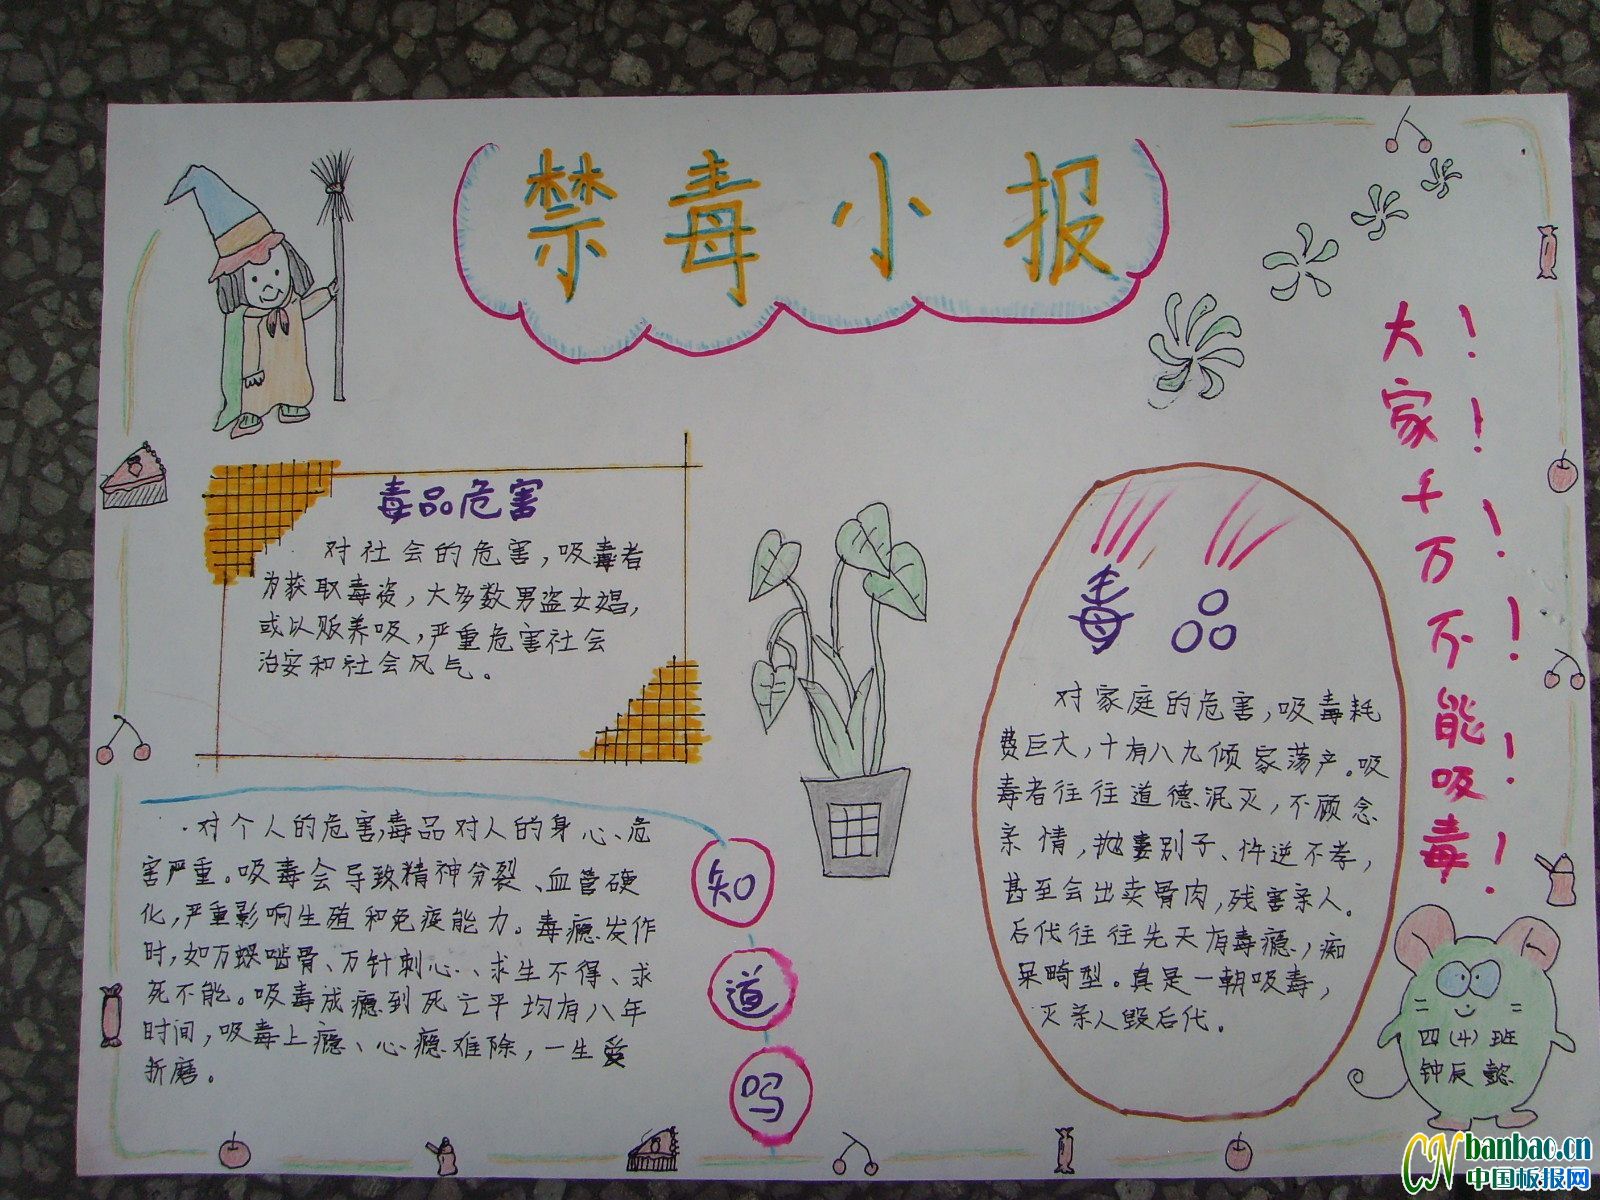 禁毒小报
毒品危害
对社会的危害，吸毒者
为获取毒资，大多数男盗女娼，
或以贩养吸，严重危害社会
治安和社会风气。
对个人的危害，毒品对人的身心、危
害严重。吸毒会导致精神分裂、血管硬
化，严重影响生殖和免疫能力。毒瘾发作
时，如万蚁啮骨、万针刺心、求生不得、求
死不能。吸毒成瘾到死亡平均有八年
时间，吸毒上瘾、心瘾难除，一生受
折磨。
知
道
吗
毒品
对家庭的危害，吸毒耗
费巨大，十有八九倾家荡产。吸
毒者往往道德泯灭，不顾念
亲情，抛妻别子、忤逆不孝，
甚至会出卖骨肉，残害亲人。
后代往往先天有毒瘾，痴
呆畸型。真是一朝吸毒，
灭亲人毁后代。
大家千万不能吸毒！！！！！！
四（4）班
钟辰懿
CN banbao.cn
中国板报网